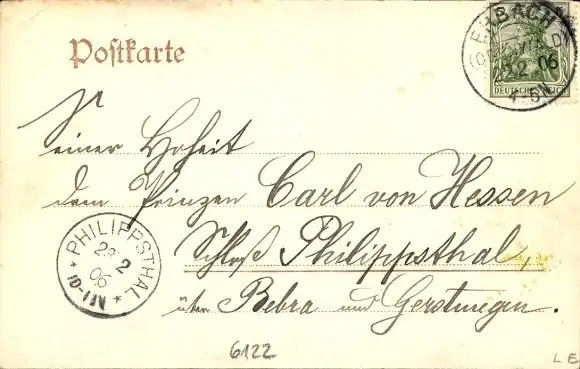 Postkarte
ERBACH
2.2. 06
4-5N
DEUTSCHES REICH
Seiner Hoheit
dem Prinzen Carl von Hessen
Schloß Philippsthal,
über Bebra und Gerstungen.
PHILIPPSTHAL
2
06
6122
L E